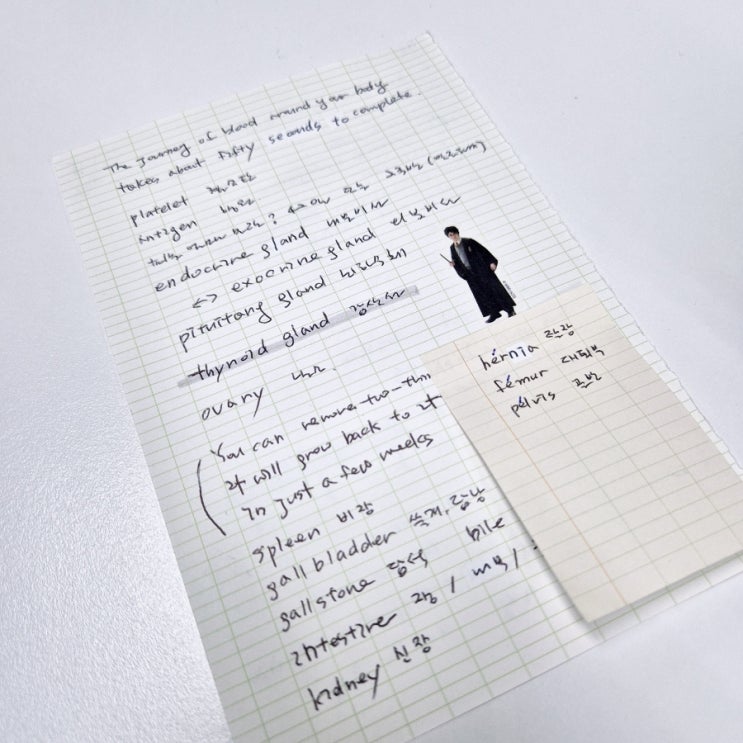 The journey of blood around your body
takes about fifty seconds to complete.
platelet 혈소판
antigen 항원
endocrine gland 내분비샘
<-> exocrine gland 외분비샘
pituitary gland 뇌하수체
thyroid gland 갑상샘
ovary 난소
(You can remove two-thir
it will grow back to it
in just a few weeks
spleen 비장
gall bladder 쓸개, 담낭
gallstone 담석 bile
intestine 장 /
kidney 신장
hérnia 탈장
fémur 대퇴골
pélvis 골반